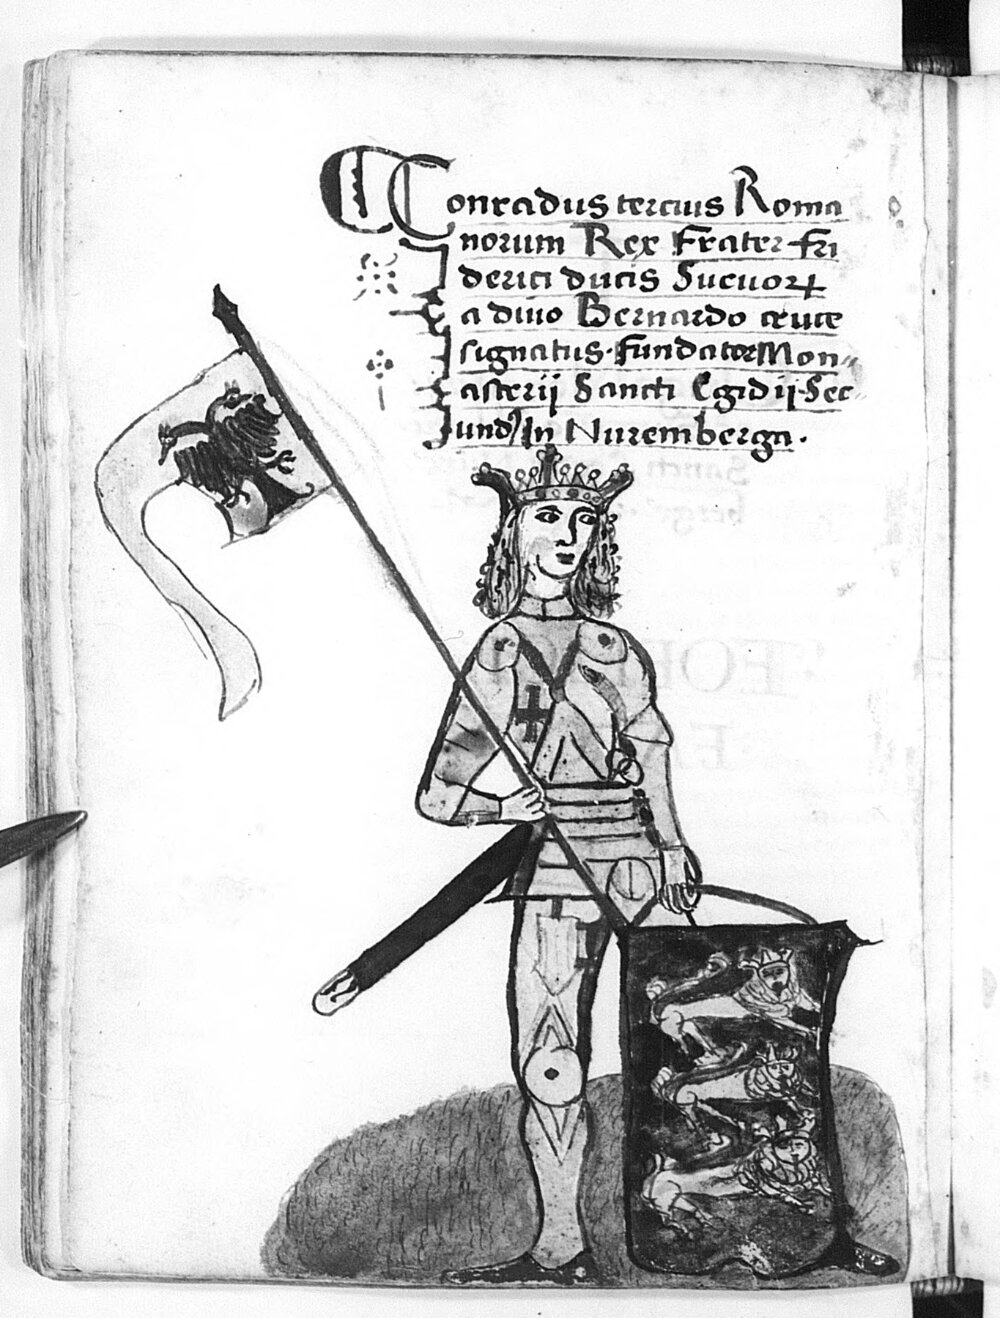 Conradus tercius Roma
norum Rex Frater fri
derici ducis Sueuorꝝ
a diuo Bernardo cruce
signatus. fundator Mon-
asterij Sancti Egidij Sec
und' In Nuremberga.